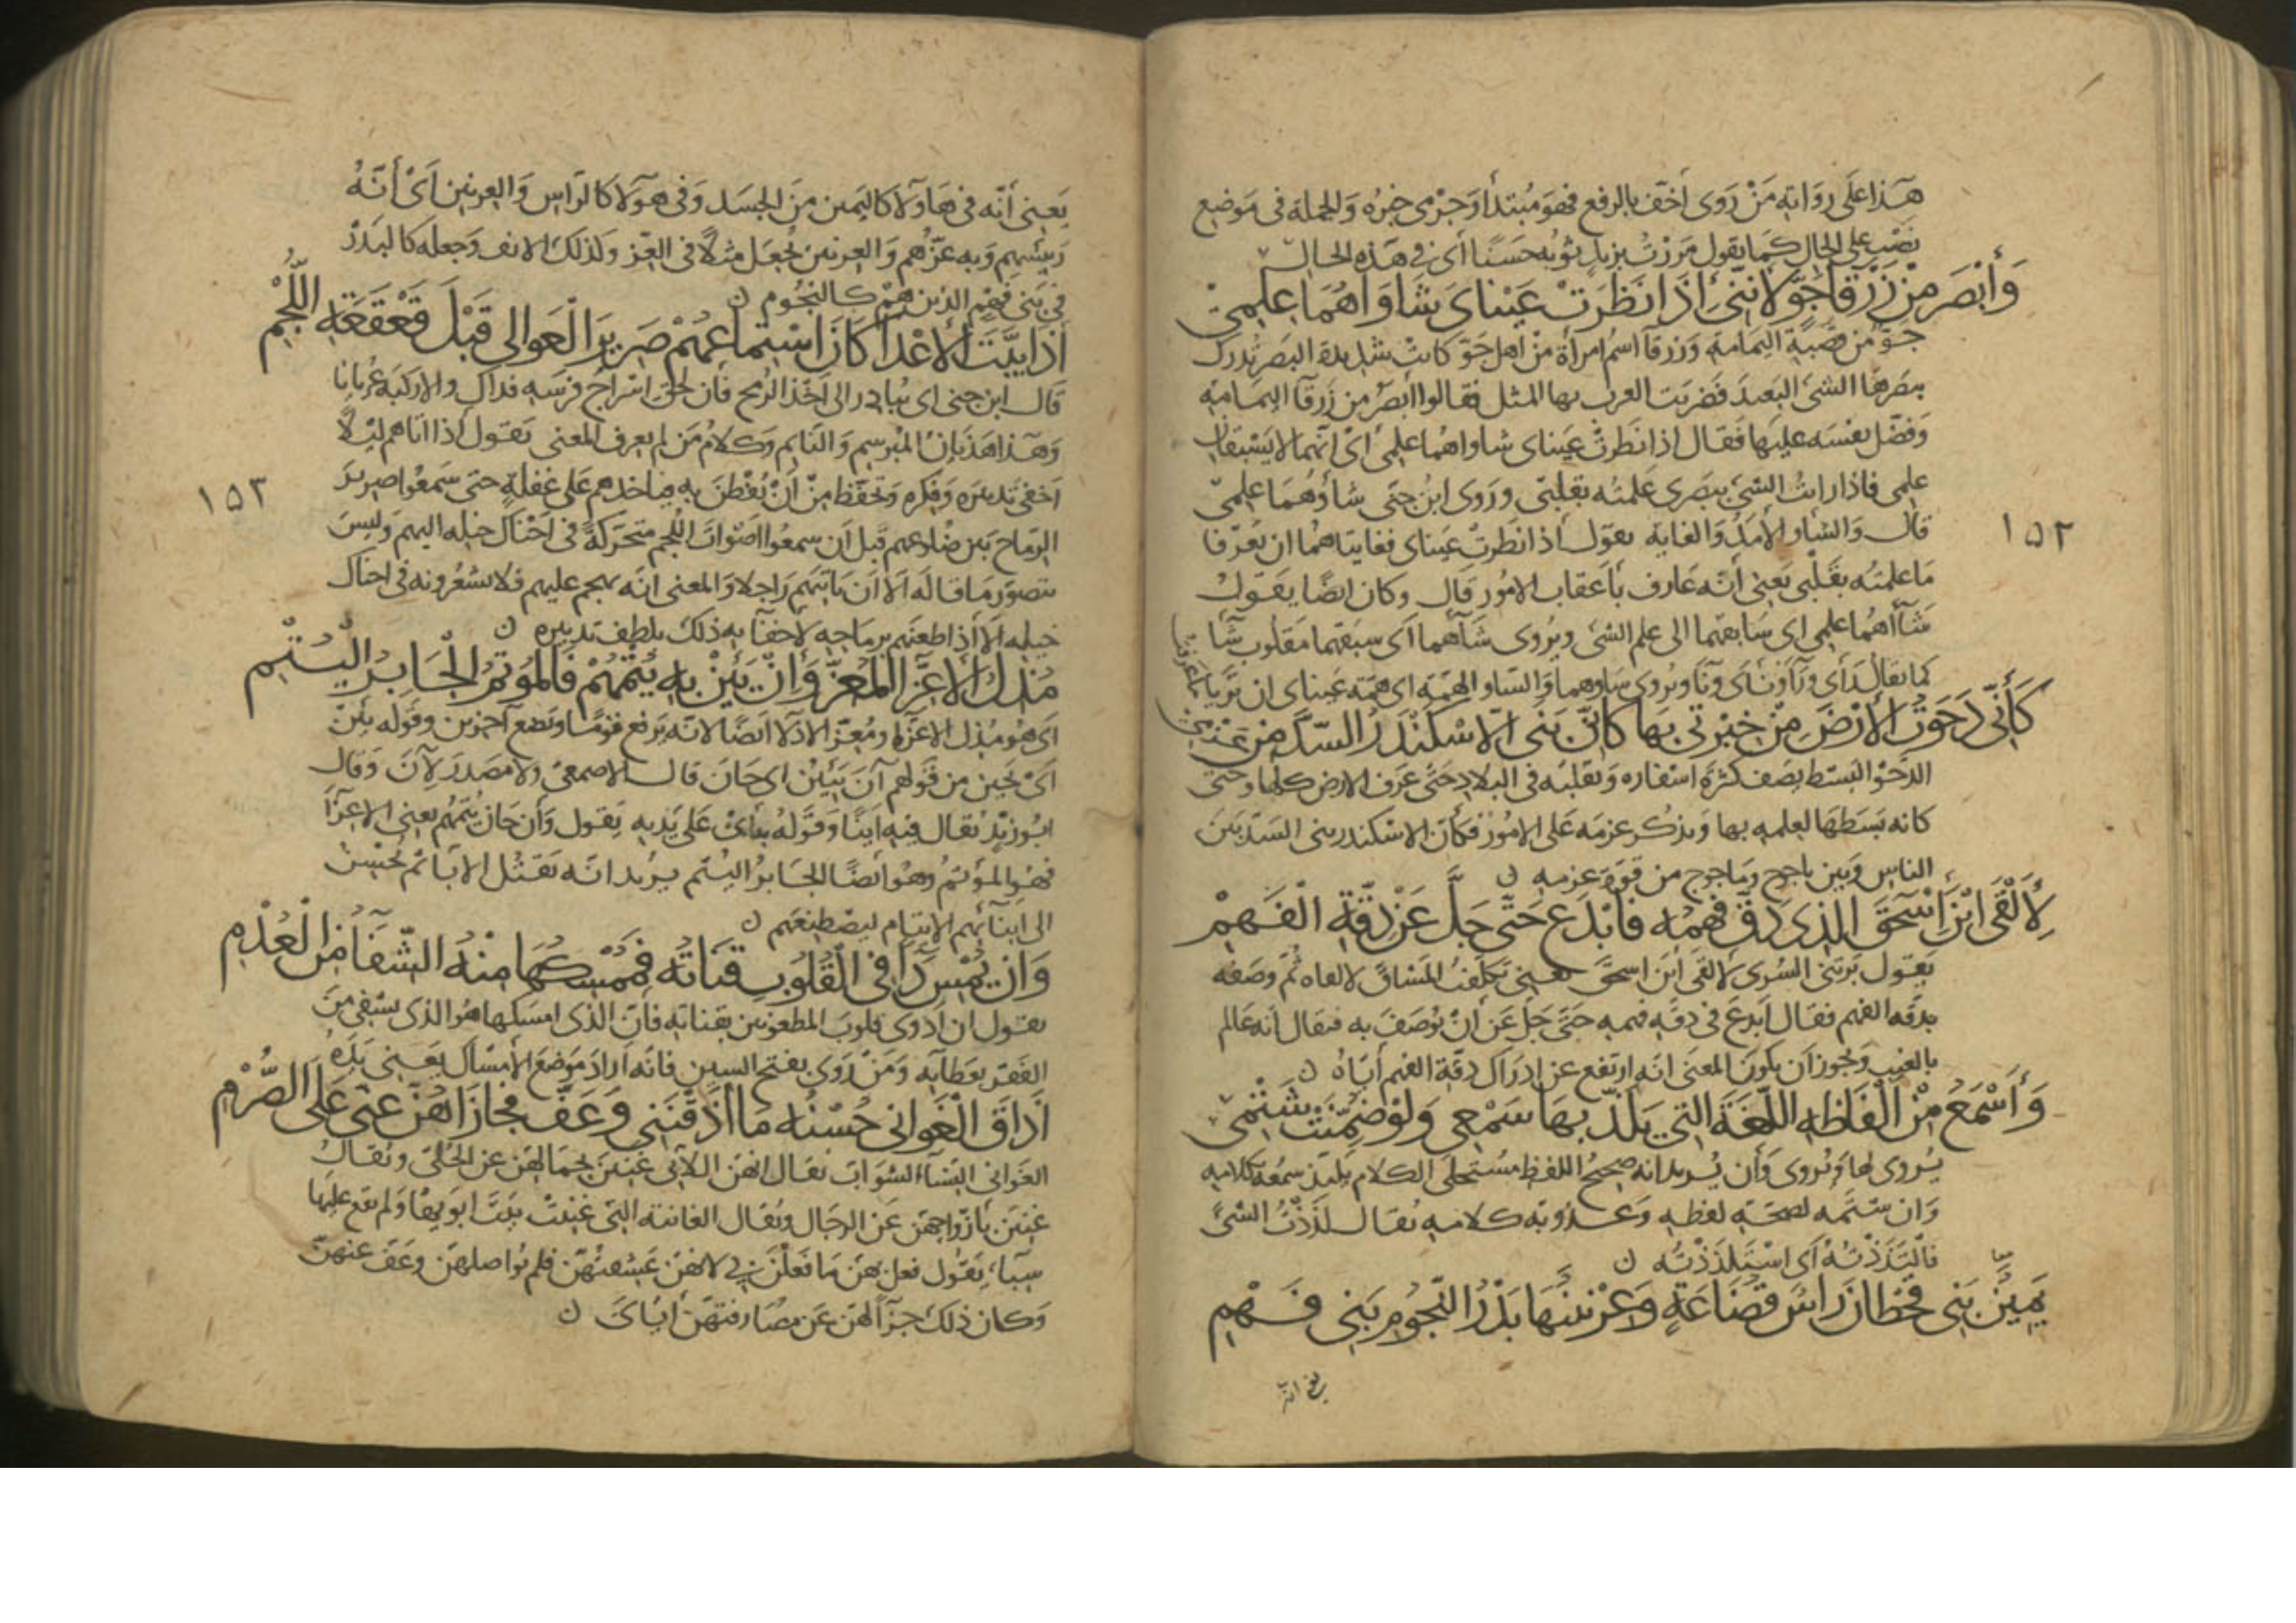 هذا على رواية من روى أخف بالرفع فهو مبتدأ وجرمى خبره والجملة فى موضع
نصب على الحال كما يقول مررت بزيد ثوبه حسنا أى فى هذه الحال
وَأَبْصَرَ مِنْ زَرْقَاءِ جَوٍّ لأَنَّنِى إذَا نَظَرَتْ عَيْنَاىَ شَاوَاهُمَا عِلْمِى
جو من قصبة اليمامة وزرقا اسم امرأة من اهل جو كانت شديدة البصر تدرك
ببصرها الشئ البعيد فضربت العرب بها المثل فقالوا أبصر من زرقا اليمامة
وفضل نفسه عليها فقال اذا نظرت عيناى شاواهما علمى اى انهما لا يسبقان
علمى فاذا رايت الشئ ببصرى علمته بقلبى وروى ابن جنى شأوهما علمى
قال والشاو الامد والغاية يقول اذا نظرت عيناى فغايتاهما ان يعرفا
ما علمته بقلبى يعنى أنه عارف بأعقاب الامور قال وكان ايضا يقول
شأاهما علمى اى سابقهما الى علم الشئ ويروى شآهما اى سبقهما مقلوب شأا
كما يقال رأى ورآ ونأى ونآ ويروى شاوهما والشاو الهمة اى همة عيناى ان تريا ما عرفته
كَأَنِّى دَحَوْتُ الأَرْضَ مِنْ خِبْرَتِى بِهَا كَأَنِّى بَنَى الاسْكَنْدَرُ السَّدَّ مِنْ عَزْمِى
الدحو البسط يصف كثرة اسفاره وتقلبه فى البلاد حتى عرف الارض كلها وحتى
كانه بسطها لعلمه بها ويذكر عزمه على الامور فكأن الاسكندر بنى السد بين
الناس وبين ياجوج وماجوج من قوة عزمه ن
لأَلْقَى ابْنَ اسْحَقَ الذى دَقَّ فَهْمُه فَأَبْدَعَ حَتَّى جَلَّ عَنْ دِقَّةِ الْفَهْمْ
يقول برتنى السرى لالقى ابن اسحق يعنى تكلفت المشاق لالقاه ثم وصفه
بدقة الفهم فقال أبدع فى دقة فهمه حتى جل عن أن يوصف به فيقال انه عالم
بالغيب ويجوز ان يكون المعنى انه ارتفع عن ادراك دقة الفهم أياه ن
وَأَسْمَعُ مِنْ أَلْفَاظِهِ اللُّغَةَ التى يَلَذُّ بِهَا سَمْعِى وَلَوْ ضُمِّنَتْ شَتْمِى
يروى لها ويروى وأن يريد انه صحيح اللفظ مستحلى الكلام يلتذ سمعه بكلامه
وان شتمه لصحة لفظه وعذوبة كلامه يقال لذذت الشئ
فالتذذته أى استلذذته ن
يَمِينُ بَنِى قَحْطَانَ رَاسُ قُضَاعَةٍ وَعِرْنِينُهَا بَدْرُ النُّجُومِ بَنِى فَهْمِ
١٥٢
يعنى أنه فى هاولآ كاليمين من الجسد وفى هولا كالراس والعرنين اى أنه
رييسهم وبه عزهم والعرنين يجعل مثلا فى العز وكذلك الانف وجعله كالبدر
فى بنى فهم الذين هم كالنجوم ن
اذَا بَيَّتَ الأَعْدَا كَانَ اسْتِمَاعُهُمْ صَرِيرَ الْعَوَالِى قَبْلَ قَعْقَعَةِ اللُّجْمِ
قال ابن جنى اى يبادر الى اخذ الرمح فان لحق اسراج فرسه فذاك والا ركبه عريانا
وهذا هذيان المبرسم والنايم وكلام من لم يعرف المعنى يقول اذا اتاهم ليلا
اخفى تدبيره وفكره وتحفظ من أن يفطن به فياخذهم على غفلة حتى سمعوا صرير
الرماح بين ضلوعهم قبل ان سمعوا اصوات اللجم متحركة فى احناك خيله اليهم وليس
يتصور ما قاله الا ان ياتيهم راجلا والمعنى انه يهجم عليهم فلا يشعرونه فى احناك
خيله الا اذا طعنهم برماحه لاخفآيه ذلك بلطف تدبيره ن
مُذِلُّ الأَعِزَّاءِ الْمُعِزُّ وَإنْ يَئِنْ بِهِ يُتْمُهُمْ فَالْمُوتِمُ الْجَابِرُ الْيُتْمِ
اى هو مذل الاعزة ومعز الاذلا ايضا لانه يرفع قوما ويضع آخرين وقوله يئن
اى يحين من قولهم آن يئين اى حان قال الاصمعى ولا مصدر لآن وقال
ابو زيد يقال فيه اينا وقوله به اى على يديه يقول وان حان يتمهم يعنى الاعزآ
فهو الموتم وهو أيضا الجابر اليتم يريد انه يقتل الابآ ثم يحسن
الى ابنآئهم الايتام ليصطنعهم ن
وَانْ تُمْسِ دَاءً فى الْقُلُوبِ قَنَاتُه فَمُمْسِكُهَا مِنْهُ الشِّفَآءُ مِنَ الْعُدْمِ
يقول ان ادوى قلوب المطعونين بقناته فان الذى امسكها هو الذى يشفى من
الفقر بعطآيه ومن روى بفتح السين فانه اراد موضع الامساك يعنى يده
اذَاقَ الْغَوَانِى حُسْنُه مَا أَذَقْنَنِى وَعَفَّ فَجَازَاهُنَّ عَنِّى عَلَى الصُّرْمِ
الغوانى النسآء الشواب يقال انهن اللاتى غنين بجمالهن عن الحلى ويقال
غنين بأزواجهن عن الرجال ويقال الغانية التى غنيت ببيت ابويها ولم يقع عليها
سباء يقول فعل بهن ما فعلن بى لانهن عشقنه فلم يواصلهن وعف عنهن
وكان ذلك جزآ لهن عن مصارمتهن اياى ن
١٥٣